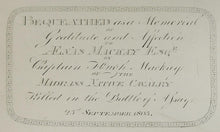 BEQUEATHED as a Memorial
of Gratitude and Affection
TO
ÆNAS MACKAY ESQR.
BY
Captain Hugh Mackay
OF THE
MADRASS NATIVE CAVALRY
Killed in the Battle of Assay
23D. SEPTEMBER 1803.